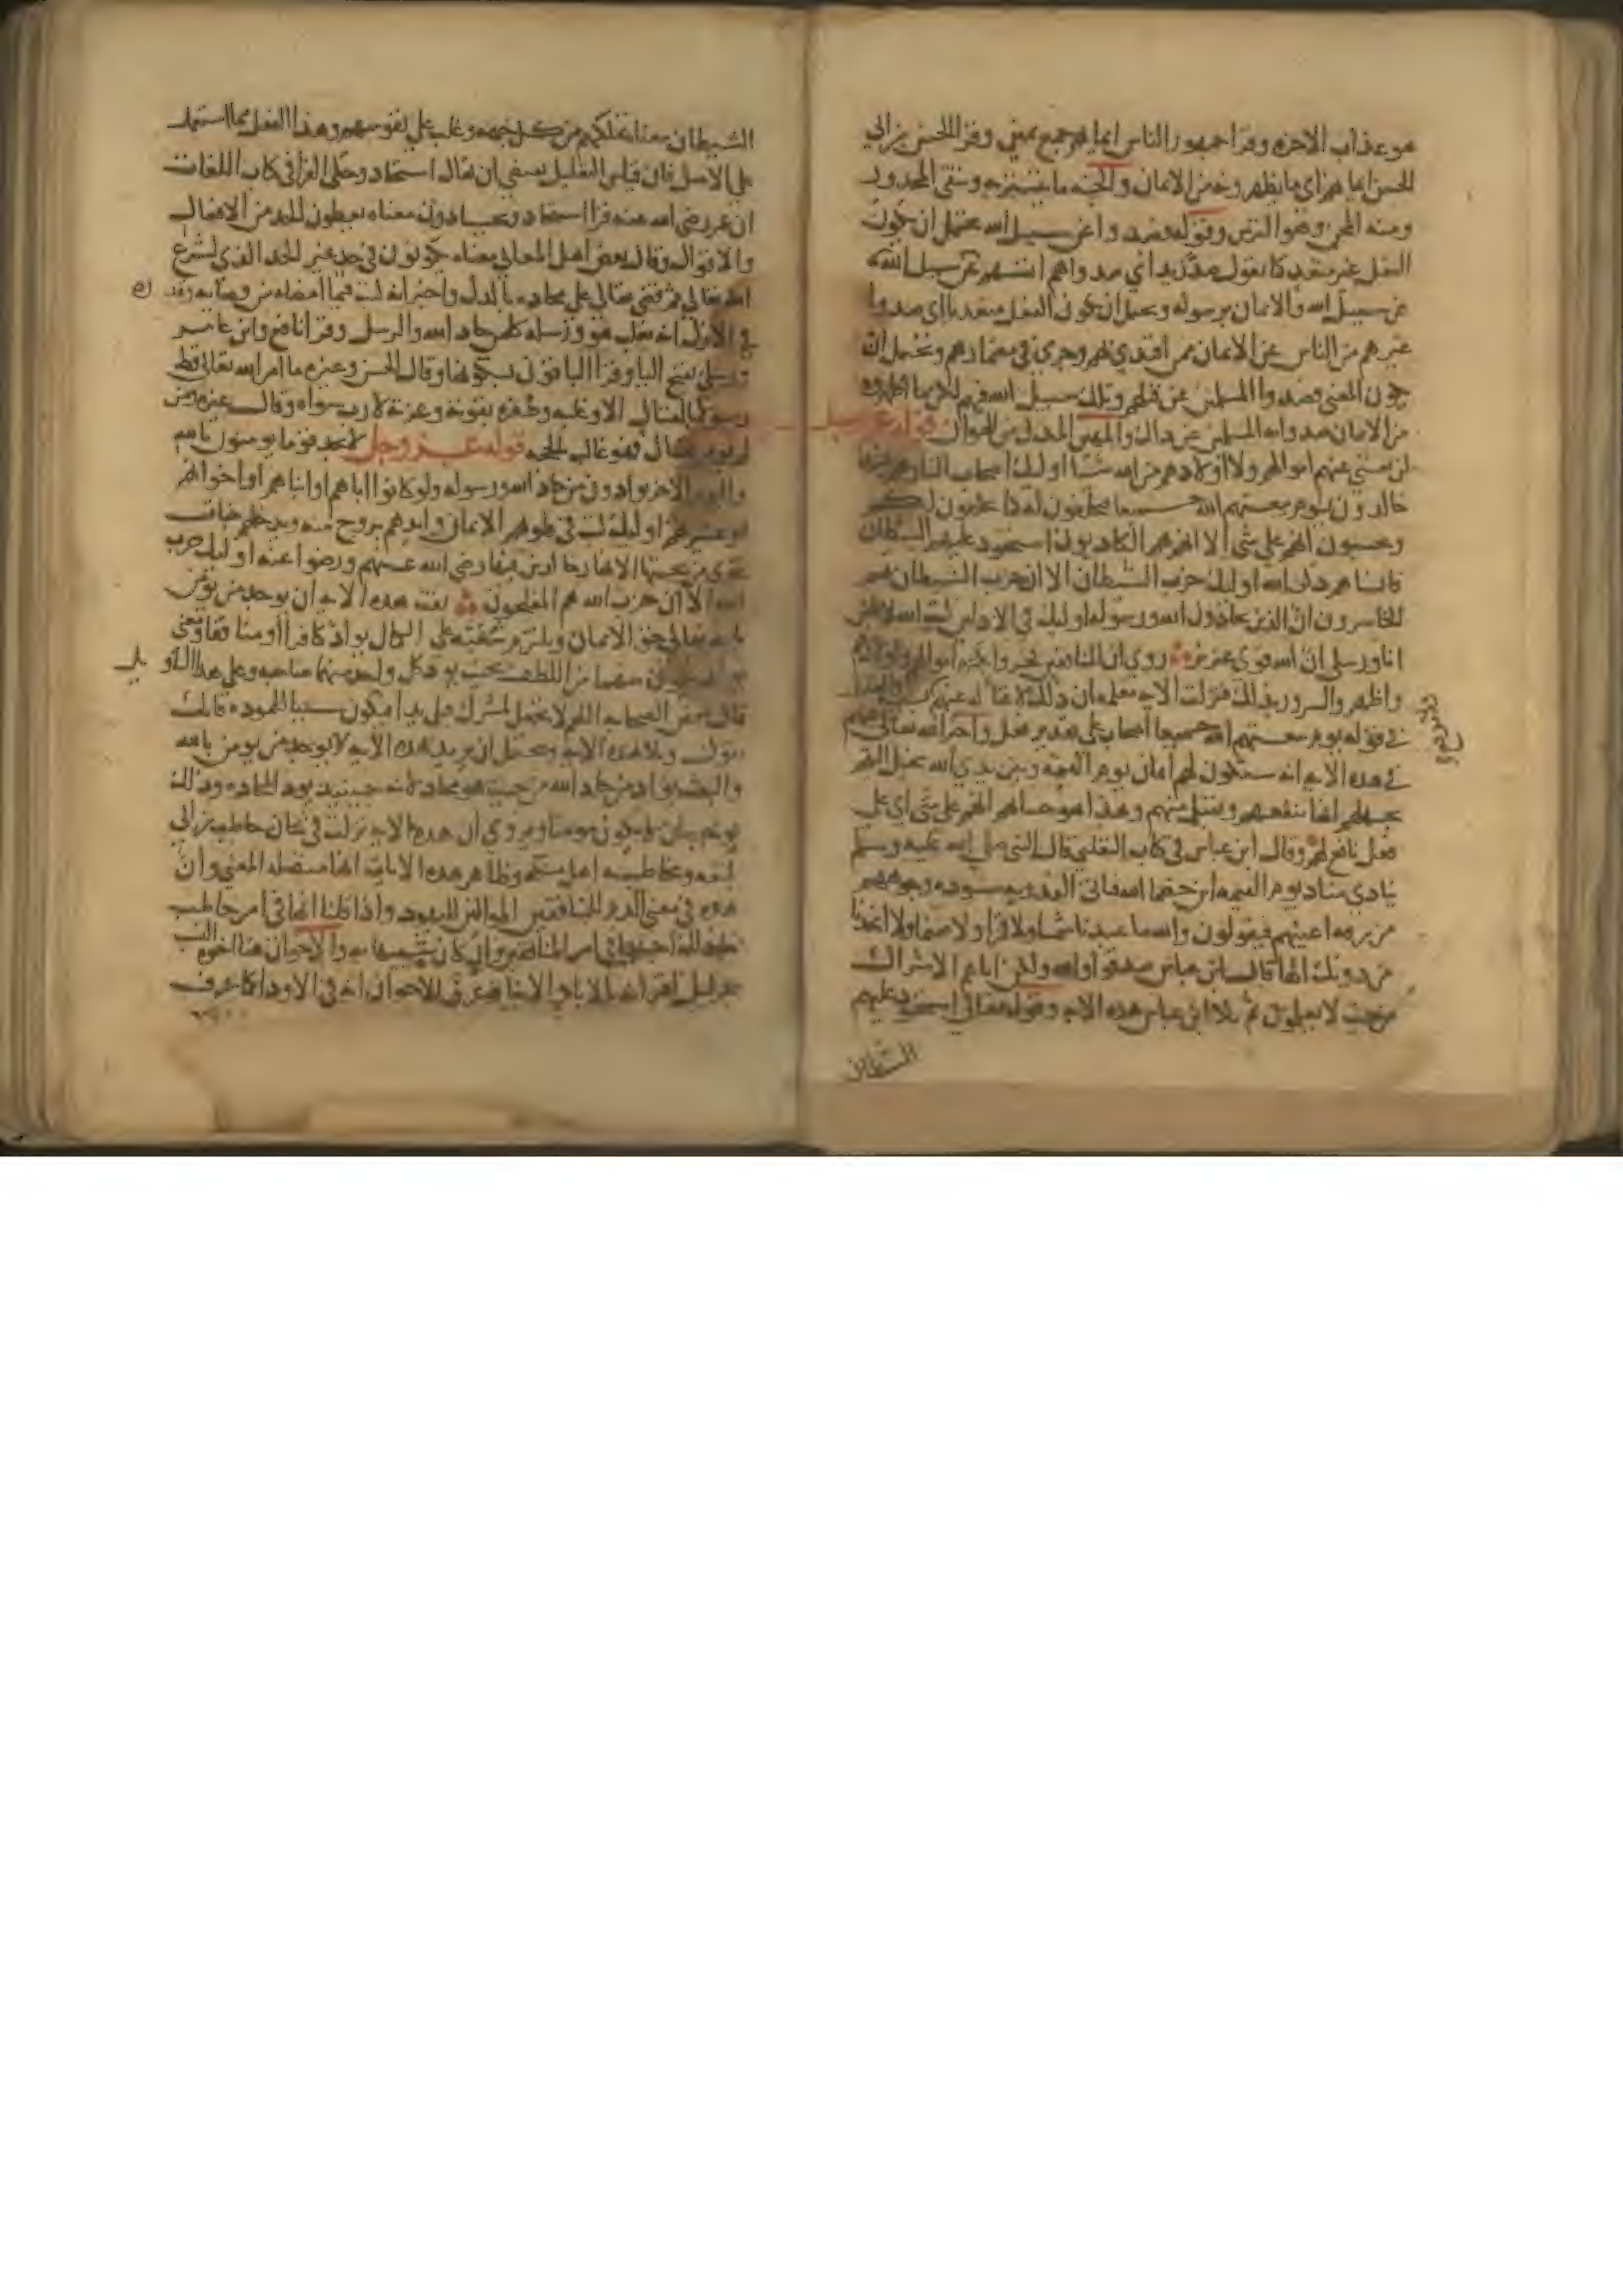 هو عذاب الاخرة وقرا جمهور الناس ايمانهم جمع يمين وقرا الحسن بن ابي
الحسن ايمانهم اي ما يظهرونه من الايمان والجنة ما يتستر به ويتقى المحذور
ومنه المجن وهو الترس وقوله فصدوا عن سبيل الله يحتمل ان يكون
الفعل غير متعد كما تقول صد زيد اي صدوا هم انفسهم عن سبيل الله
عن سبيل الله والايمان برسوله ويحتمل ان يكون الفعل متعديا اي صدوا
غيرهم من الناس عن الايمان ممن اقتدى بهم وجرى في مضمارهم ويحتمل ان
يكون المعنى فصدوا المسلمين عن قتلهم وتلك سبيل الله فيهم لكن ما اظهروه
من الايمان صدوا به المسلمين عن ذلك والمهين المذل من الهوان قوله عز وجل
لن تغني عنهم اموالهم ولا اولادهم من الله شيا اوليك اصحاب النار هم فيها
خالدون يوم يبعثهم الله جميعا فيحلفون له كما يحلفون لكم
ويحسبون انهم على شي الا انهم هم الكاذبون استحوذ عليهم الشيطان
فانساهم ذكر الله اوليك حزب الشيطان الا ان حزب الشيطان هم
الخاسرون ان الذين يحادون الله ورسوله اوليك في الاذلين كتب الله لاغلبن
انا ورسلي ان الله قوي عزيز روي ان المنافقين فخروا بكثرة اموالهم واولادهم
واظهروا السرور بذلك فنزلت الاية معلمة ان ذلك لا غناء له عنهم
في قوله يوم يبعثهم الله جميعا اصحاب على تقدير فعل واخبر الله تعالى عنهم
في هذه الاية انه ستكون لهم ايمان يوم القيمة وبين يدي الله يخيل اليهم
بجهلهم انها تنفعهم وتقبل منهم وهذا هو حسابهم انهم على شي اي على
فعل نافع لهم وقال ابن عباس في كتاب الثعلبي قال النبي صلى الله عليه وسلم
ينادي مناد يوم القيمة اين خصما الله فتاتي القدرية مسودة وجوههم
مزرقة اعينهم فيقولون والله ما عبدنا شمسا ولا قمرا ولا صنما ولا اتخذنا
من دونك الها قال ابن عباس صدقوا والله ولكن اتاهم الاشراك
من حيث لا يعلمون ثم تلا ابن عباس هذه الاية وقوله تعالى استحوذ عليهم
الشيطان
الشيطان معناه تملكهم من كل جهة وغلب على نفوسهم وهذا الفعل مما استعمل
على الاصل فان قياس التعليل يقتضي ان يقال استحاذ وحكى الفرا في كتاب اللغات
ان عمر رضي الله عنه قرا استحاذ ويحادون معناه يعطون الحد من الافعال
والاقوال وقال بعض اهل المعاني معناه يكونون في حد غير الحد الذي شرع
الله تعالى ثم قضى تعالى على محاده بالذل واخبر انه كتب فيما امضاه من قضائه وقدره
في الازل انه يغلب هو ورسله كل من حاد الله والرسل وقرا نافع وابن عامر
ورسلي بفتح اليا وقرا الباقون بسكونها وقال الحسن وغيره ما امر الله تعالى قط
رسولا بالقتال الا وغلبه وظفره بقوته وعزته لا رب سواه وقال غيره ومن
لم يومر بقتال فهو غالب بالحجة قوله عز وجل لا تجد قوما يومنون بالله
واليوم الاخر يوادون من حاد الله ورسوله ولو كانوا اباهم او ابناهم او اخوانهم
او عشيرتهم اوليك كتب في قلوبهم الايمان وايدهم بروح منه ويدخلهم جنات
تجري من تحتها الانهار خالدين فيها رضي الله عنهم ورضوا عنه اوليك حزب
الله الا ان حزب الله هم المفلحون نفت هذه الاية ان يوجد من يومن
بالله تعالى حق الايمان ويلتزم شعبه على الكمال يواد كافرا او منافقا ومعنى
يواد يكون بينهما من اللطف بحيث يود كل واحد منهما صاحبه وعلى هذا التاويل
قال بعض الصحابة اللهم لا تجعل لمشرك قبلي يدا فيكون سببا للمودة فانك
تقول وتلا هذه الاية ويحتمل ان يريد بهذه الاية لا يوجد من يومن بالله
والبعث يواد من حاد الله من حيث هو محاد لانه حينيذ يود المحادة وذلك
يوجب ان لا يكون مومنا ويروى ان هذه الاية نزلت في شان حاطب بن ابي
بلتعة ومخاطبته اهل مكة وظاهر هذه الايات انها متصلة المعنى وان
هذه في معنى الذم للمنافقين الموالين لليهود واذا قلنا انها في امر حاطب
والاخوان هنا اخوة النسب